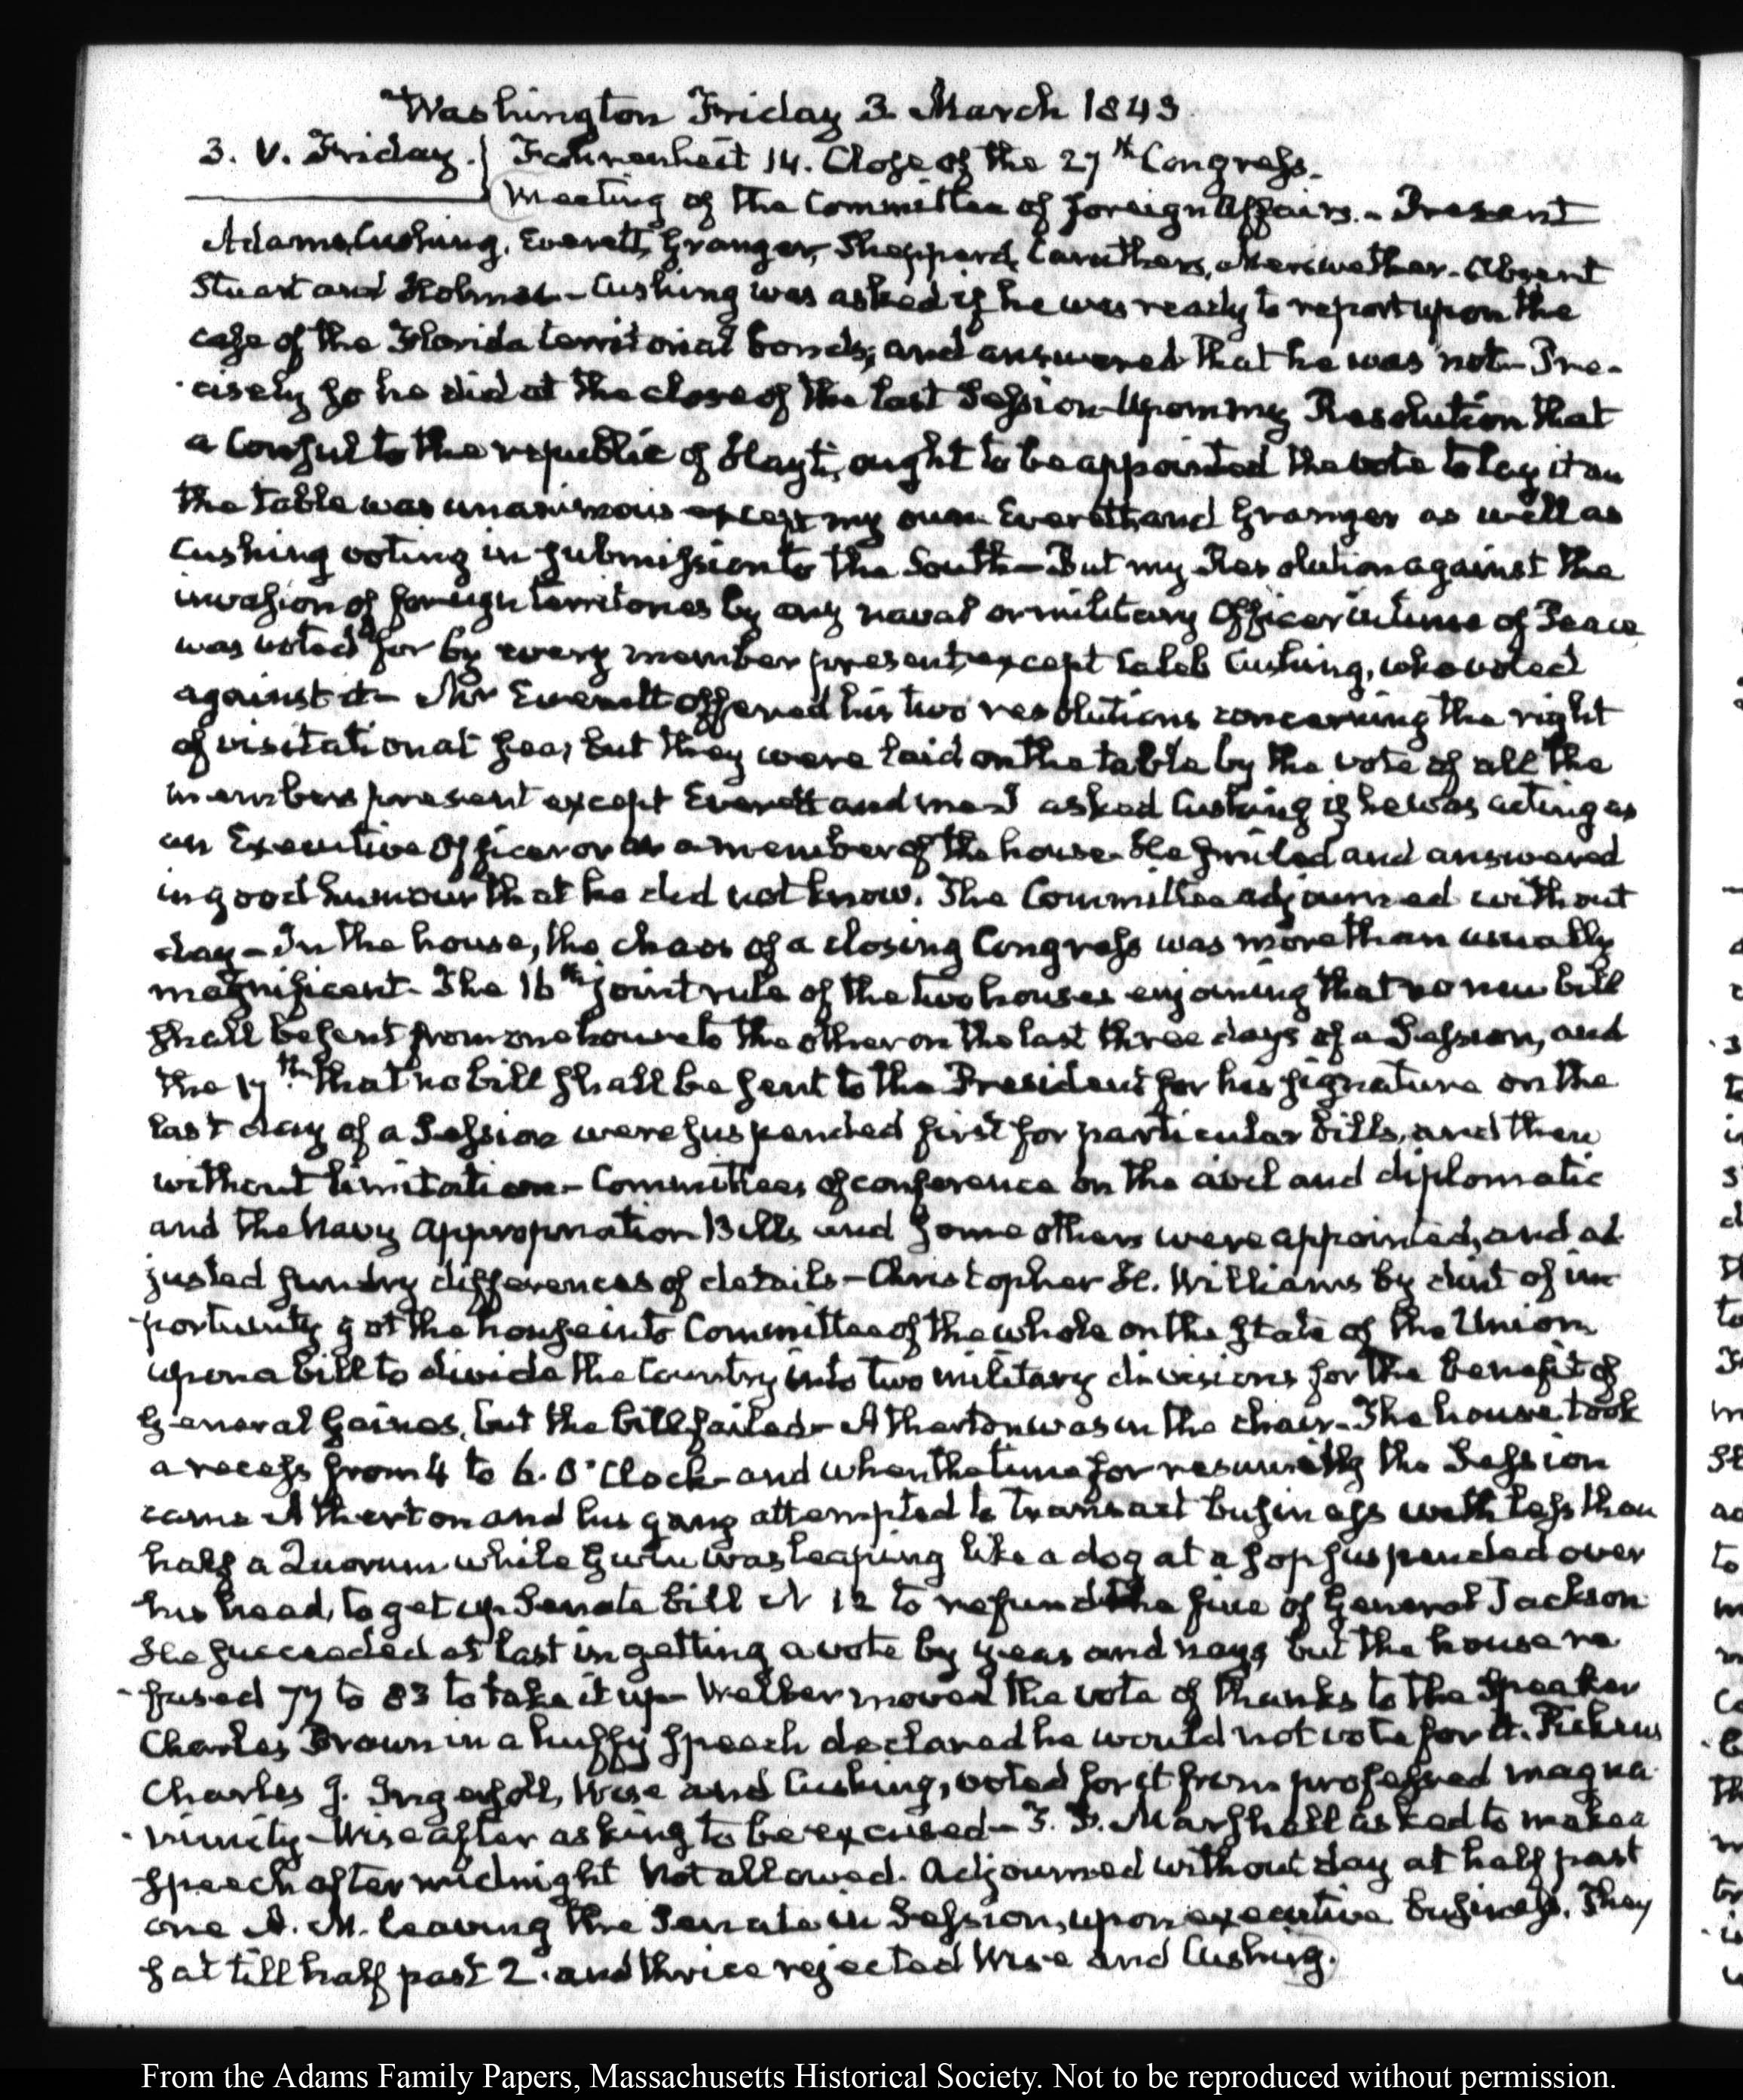 Washington Friday 3. March 1843
3. V. Friday. Fahrenheit 14. Close of the 27th Congress.
Meeting of the Committee of foreign Affairs. - Present
Adams, Cushing, Everett, Granger, Shepperd, Caruthers, Meriwether - Absent
Stuart and Holmes - Cushing was asked if he was ready to report upon the
case of the Florida territorial bonds; and answered that he was not - Pre-
cisely so he did at the close of the last Session - Upon my Resolution that
a Consul to the republic of Hayti, ought to be appointed the vote to lay it on
the table was unanimous except my own. Everett, and Granger as well as
Cushing voting in submission to the South - But my Resolution against the
invasion of foreign territories by any naval or military Officer in time of Peace
was voted for by every member present, except Caleb Cushing, who voted
against it - Mr Everett offered his two resolutions concerning the right
of visitation at sea, but they were laid on the table by the vote of all the
members present except Everett and me - I asked Cushing if he was acting as
an Executive Officer or as a member of the house - He smiled and answered
in good humour that he did not know. The Committee adjourned without
day - In the house, the chaos of a closing Congress was more than usually
magnificent - The 16th joint rule of the two houses enjoining that no new bill
shall be sent from one house to the other on the last three days of a Session, and
the 17th that no bill shall be sent to the President for his signature on the
last day of a Session were suspended first for particular bills, and then
without limitation - Committees of conference on the civil and diplomatic
and the Navy appropriation Bills and some others were appointed, and ad-
justed sundry differences of details - Christopher H. Williams by dint of im-
portunity got the house into Committee of the whole on the state of the Union
upon a bill to divide the Country into two military divisions for the benefit of
General Gaines, but the bill failed - Atherton was in the chair - The house took
a recess from 4 to 6. O'Clock - and when the time for resuming the Session
came Atherton and his gang attempted to transact business with less than
half a Quorum while Gwin was leaping like a dog at a sop suspended over
his head, to get up Senate bill N 12 to refund the fine of General Jackson
He succeeded at last in getting a vote by yeas and nays, but the house re-
fused 77 to 83 to take it up - Weller moved the vote of thanks to the Speaker
Charles Brown in a huffy speech declared he would not vote for it. Pickens
Charles J. Ingersoll, Wise and Cushing, voted for it from professed magna-
nimity - Wise after asking to be excused - T. F. Marshall asked to make a
speech after midnight Not allowed. Adjourned without day at half past
one A. M. leaving the Senate in Session, upon executive business. They
sat till half past 2. and thrice rejected Wise and Cushing.
From the Adams Family Papers, Massachusetts Historical Society. Not to be reproduced without permission.